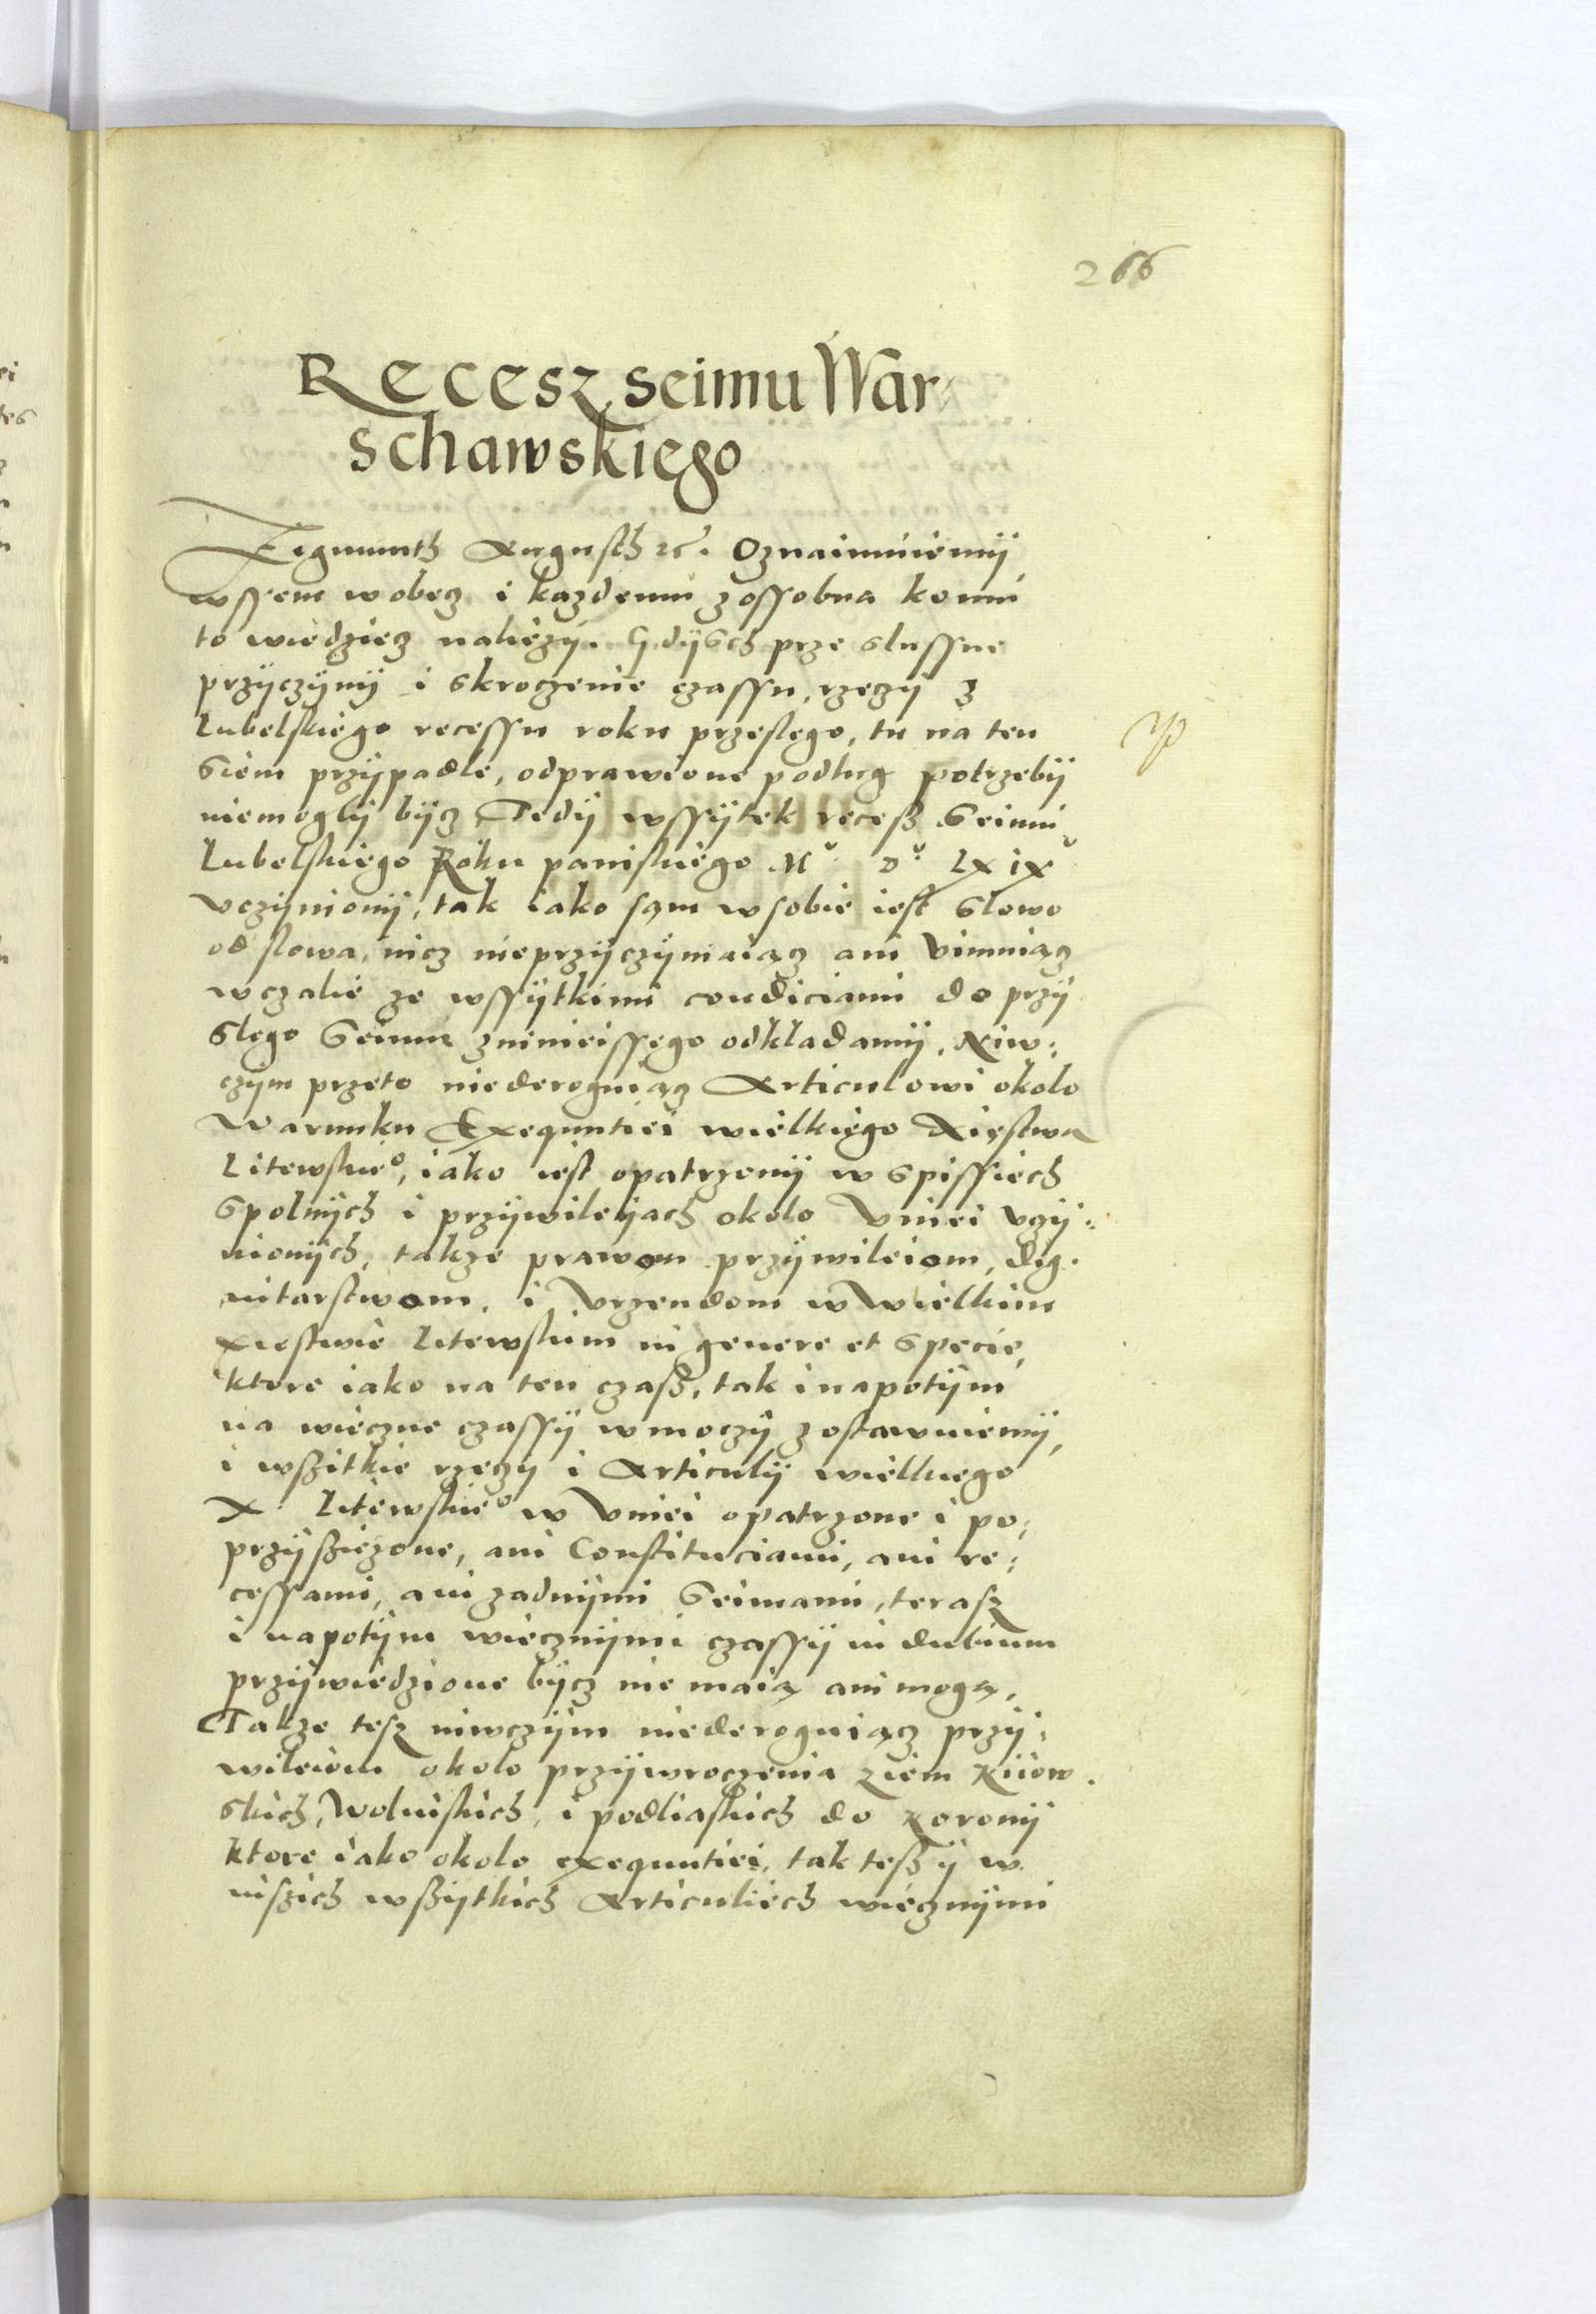 266
Recesz seimu War-
schawskiego
Zigmunth Augusth etc. Oznaimuiemÿ
wssem wobecz i kazdemu zossobna komu
to wiedziecz nalezÿ. Gdÿsch prze slussne
przÿczÿnÿ i skroczenie czassu, rzeczÿ z
Lubelskiego recessu roku przeslego, tu na ten
Siem przÿpadle, odprawione podlug potrzebÿ
niemoglÿ bÿcz, Tedÿ wssÿtek recess Seimu
Lubelskiego Roku paniskiego Mº Dº LXIXº
vczÿnionÿ, tak iako sąm wsobie iest slowo
od slowa, nicz nieprzÿczÿniaiącz ani vimuiącz
wczalie ze wssÿtkimi condiciami do przÿ
slego Seimu zninieissego odkladamÿ, Niw:
czÿm przeto niederoguiącz Articulowi okolo
warunku Exequutiei wielkiego Xięstwa
Litewskieº, iako iest opatrzonÿ w spissiech
spolnÿch i przÿwileÿach okolo Vniei vczÿ:
nionÿch, takze prawom przÿwileiom, dig.
nitarstwom, i vrzendom w wielkim
Xiestwie Litewskim in genere et specie,
ktore iako na ten czass, tak i napotÿm
na wieczne czassÿ w moczÿ zostawuiemÿ,
i wszitkie rzeczy i Articulÿ wielkiego
X Litewskieº w Vniei opatrzone i po:
przÿsziezone, ani Constituciami, ani re:
cessami, ani zadnÿmi Seimami, terasz
i napotÿm wiecznÿmi czassÿ in dubium
przÿwiedzione bÿcz nie maią ani mogą,
Takze tesz niwczÿm niederoguiącz przÿ:
wileiom okolo przÿwroczenia Ziem Kiiow.
skich, Woliniskich, i podliaskich do Koronÿ
ktore iako okolo exequutiei, tak tesz ÿ w
inszich wszÿtkich Articuliech wiecznÿmi